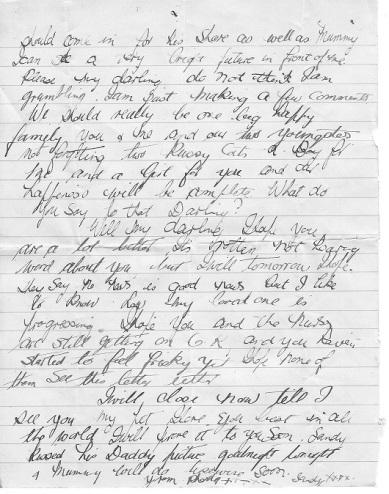 should come in for his share as well as "Mummy"
I can see a very bright future in front of me
Please my darling do not think I am
grumbling. I am just making a few comments
We should really be one big happy
family you & me and our two youngsters
not forgetting two Pussy Cats a Boy for
me and a Girl for you and our
happiness will be complete What do
you say to that Darling?
Well my darling I hope you
are a lot better its rotten not having
word about you but I will tomorrow I hope.
They say no news is good news but I like
to know how my loved one is
progressing. I hope you and the Nurse
are still getting on O.K and you haven't
started to feel freaky yet I hope none of
them see this letter
I will close now tell I
see you my pet I love you best in all
the world I will prove it to you soon. Sandy
kissed his Daddy picture goodnight tonight
& Mummy will do likewise soon.
from
Sandy xxx.